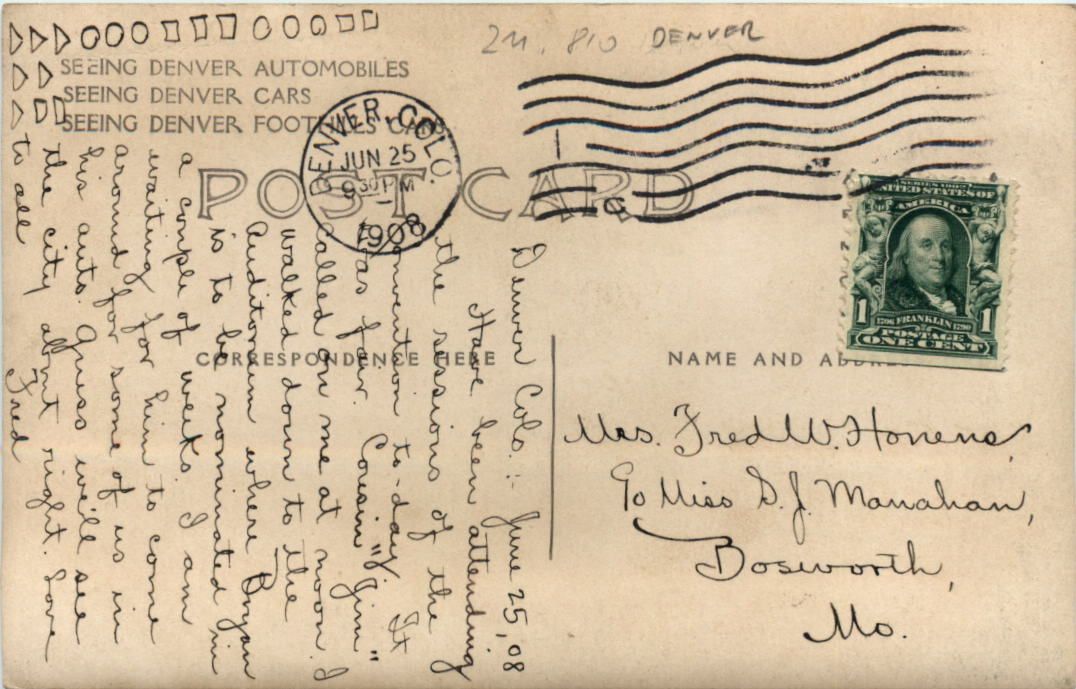 2u. 810 DENVER
SEEING DENVER AUTOMOBILES
SEEING DENVER CARS
SEEING DENVER FOOTHILLS CARS
DENVER, COLO.
JUN 25
9 30 PM
1908
POST CARD
SERIES 1902
UNITED STATES OF
AMERICA
1 1
1706 FRANKLIN 1790
POSTAGE
ONE CENT
CORRESPONDENCE HERE
NAME AND ADDRESS
Denver Colo. :- June 25, 08
Have been attending
the sessions of the
convention to-day. It
was fair. Cousin "Jim"
called on me at noon. I
walked down to the
Auditorium where Bryan
is to be nominated in
a couple of weeks. I am
waiting for him to come
around for some of us in
his auto. Guess we'll see
the city about right. Love
to all
Fred
Mrs. Fred W. Honens,
c/o Miss S. J. Manahan,
Bosworth,
Mo.